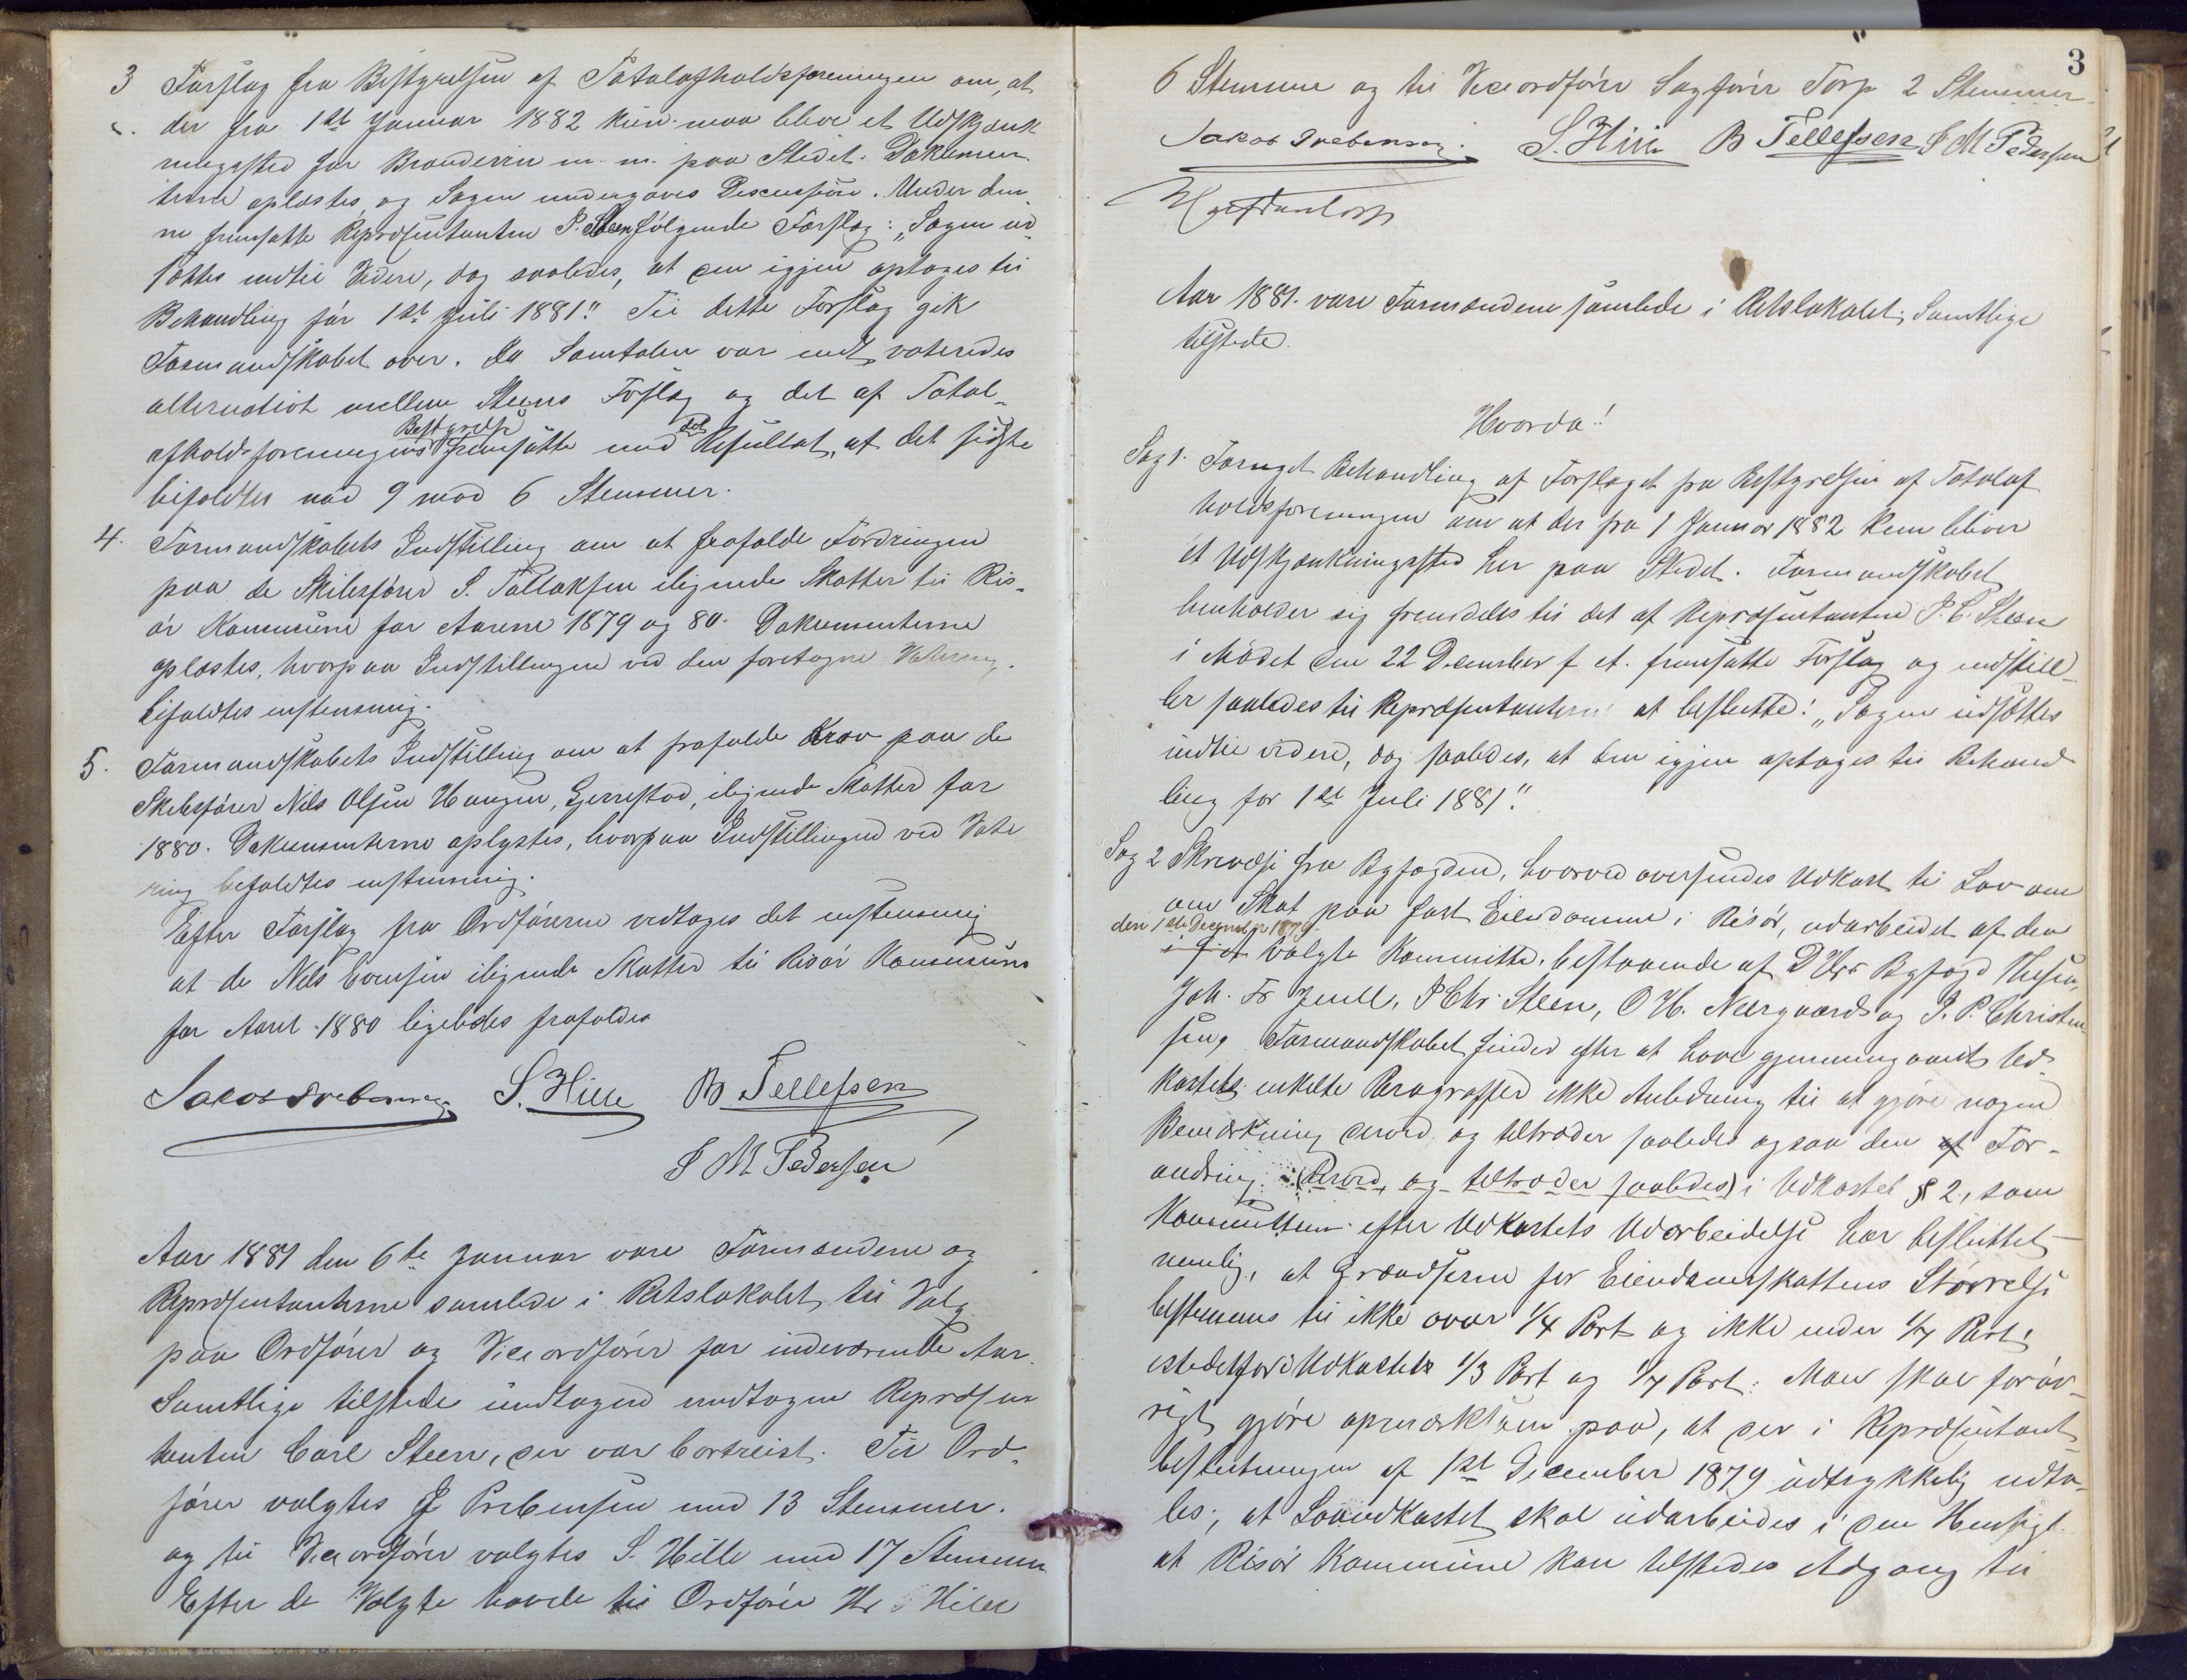 3 Forslag fra Bestyrelsen af Totalafholdsforeningen om, at
der fra 1ste Januar 1882 kun maa blive et Udskjænk
ningssted for Brændeviin m. m. paa Stedet. Dokumen
terne oplæstes og Sagen undergaves Discussion. Under den
ne fremsatte Repræsentanten P. Steen følgende Forslag: „Sagen ud
sættes indtil Videre, dog saaledes, at den igjen optages til
Behandling før 1ste Juli 1881". Til dette Forslag gik
Formandskabet over. Da Samtalen var endt, voteredes
alternativt mellem Steens Forslag og det af Total-
afholdsforeningens Bestyrelse fremsatte med det Resultat, at det sidste
bifaldtes med 9 mod 6 Stemmer.
4. Formandskabets Indstilling om at frafalde Fordringen
paa de Skibsfører S. Tallaksen ilignede Skatter til Ris-
ør Kommune for Aarene 1879 og 80. Dokumenterne
oplæstes, hvorpaa Indstillingen ved den foretagne Votering
bifaldtes enstemmig.
5. Formandskabets Indstilling om at frafalde Krav paa de
Skibsfører Nils Olsen Haugen, Gjerrestad, ilignede Skatter for
1880. Dokumenterne oplystes, hvorpaa Indstillingen ved Vote
ring bifaldtes enstemmig.
Efter Forslag fra Ordføreren vedtoges det enstemmig
at de Nils ilignede Skatter til Risør Kommune
for Aaret 1880 ligeledes frafaldes
Jakob Prebensen S. Hille B Tellefsen
S M Pedersen
Aar 1881 den 6te Januar vare Formændene og
Repræsentanterne samlede i Retslokalet til Valg
paa Ordfører og Viceordfører for indeværende Aar.
Samtlige tilstede undtagen undtagen Repræsen
tanten Carl Steen, der var bortreist. Til Ord-
fører valgtes J Prebensen med 13 Stemmer.
og til Viceordfører valgtes S. Hille med 17 Stemmer
Efter de Valgte havde til Ordfører Hr S Hille
3
6 Stemmer og til Viceordfører Sagfører Torp 2 Stemmer.
Jakob Prebensen. S. Hille B Tellefsen S M Pedersen
Aar 1881. vare Formændene samlede i Retslokalet; Samtlige
tilstede.
Hvorda!
Sag 1. Fornyet Behandling af Forslaget fra Bestyrelsen af Totalaf
holdsforeningen om at der fra 1 Januar 1882 kun bliver
et Udskjænkningssted her paa Stedet. Formandskabet
henholder sig fremdeles til det af Repræsentanten P. C. Steen
i Mødet den 22 December f. A. fremsatte Forslag og indstill-
ler saaledes til Repræsentanterne at beslutte: „Sagen udsættes
indtil videre, dog saaledes, at den igjen optages til Behand
ling før 1ste Juli 1881".
Sag 2 Skrivelse fra Byfogden, hvorved oversendes Udkast til Lov om
om Skat paa fast Eiendomme i Risør, udarbeidet af den
den 1ste December 1879
i f. A. valgte Kommitte, bestaaende af DHrr Byfoged
Joh. Fr Juell, P Chr. Steen, O H. Neergaard og J. P. Christen-
sen, Formandskabet finder efter at have gjennemgaaet Ud-
kastets enkelte Paragraffer ikke Anledning til at gjøre nogen
Bemærkning derved, og tiltræder saaledes ogsaa den af For-
andring (derved, og tiltræder saaledes) i Udkastet § 2, som
Kommitteen efter Udkastets Udarbeidelse har besluttet
nemlig, at Grændserne for Eiendomsskattens Størrelse
bestemmes til ikke over 1/4 Part og ikke under 1/7 Part,
istedetfor i Udkastet 1/3 Part og 1/7 Part. Man skal forøv-
rigt gjøre opmærksom paa, at der i Repræsentant-
beslutningen af 1ste December 1879 udtrykkelig udta-
les, at Lovudkastet skal udarbeides i den Hensigt
at Risør Kommune kan tilstedes Adgang til